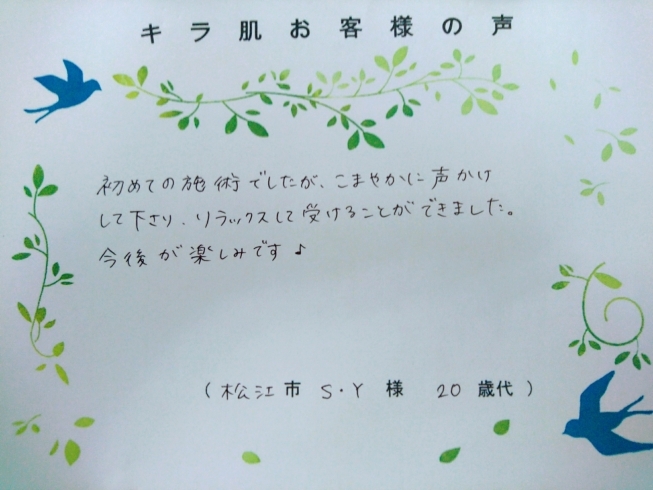 キラ肌お客様の声
初めての施術でしたが、こまやかに声かけ
して下さり、リラックスして受けることができました。
今後が楽しみです♪
（松江市 S・Y 様 20 歳代）